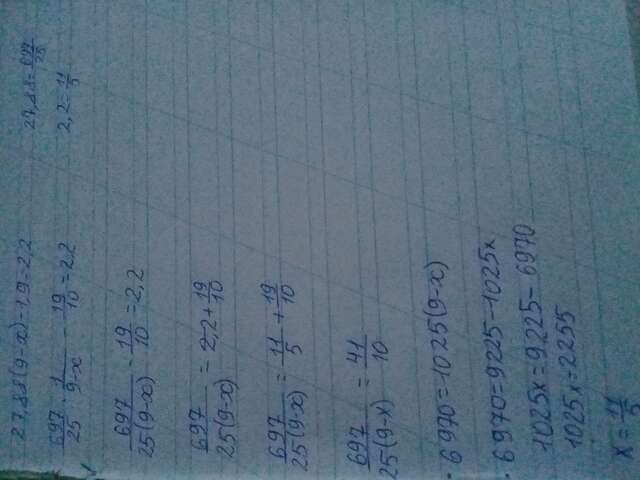 27,88(9-x)-1,9=2,2
27,88=697/25
697/25 · 1/9-x - 19/10 =2,2
2,2=11/5
697/25(9-x) - 19/10 =2,2
697/25(9-x) = 2,2+ 19/10
697/25(9-x) = 11/5 + 19/10
697/25(9-x) = 41/10
6970=1025(9-x)
6970=9225-1025x
1025x=9225-6970
1025x=2255
x = 11/5